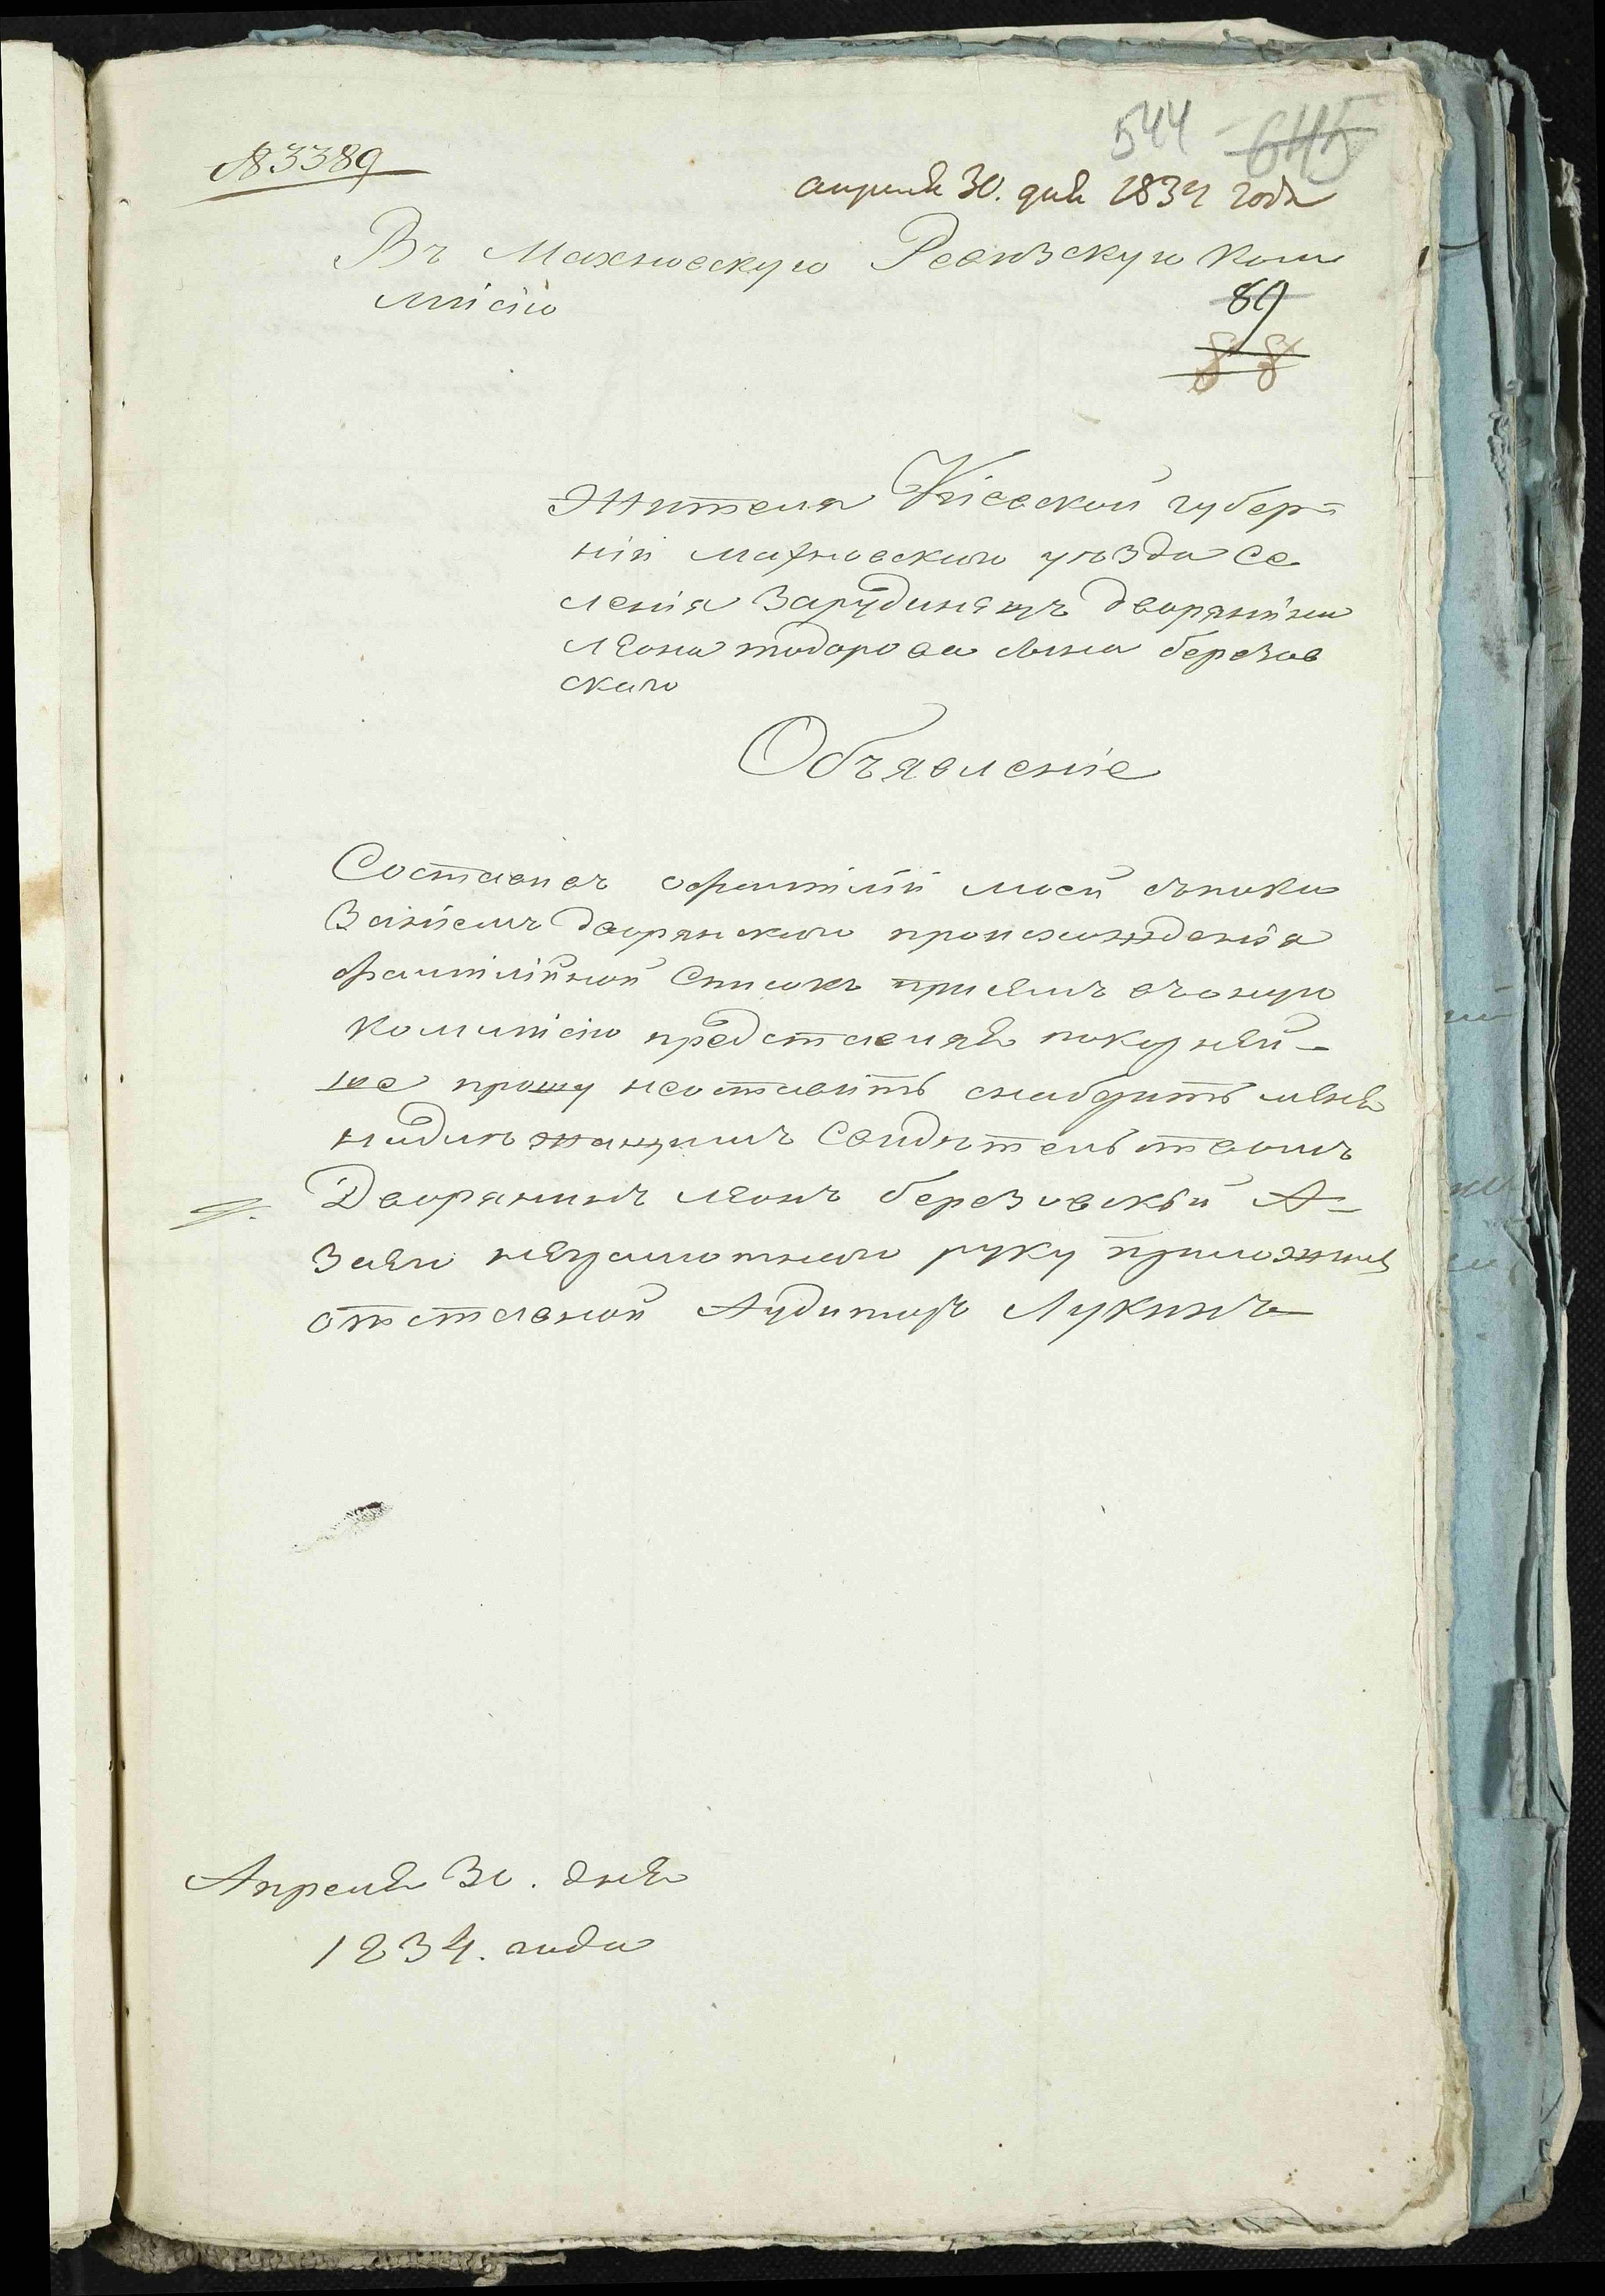 544 645
№ 3389
апреля 30. дня 1834 года
Въ Махновскую Ревизскую Ком
мисію
89
88
Жителя Кіевской губер-
ніи махновского уѣзда се
ленія Зарудинецъ дворянина
леона тодорова сына березов
ского
Объявленіе
Составивъ офамиліи моей съпока
Заніемъ дворянского произхожденія
фамилійной Списокъ присемъ въоную
комисію представляя покорней-
ше прошу неоставить снабдить меня
надлежащимъ Свидѣтельствомъ
Дворянинъ леонъ березовскій А-
Заего неграмотного руку приложилъ
отставной Аудиторъ Лукинъ
Апреля 30. дня
1834. года